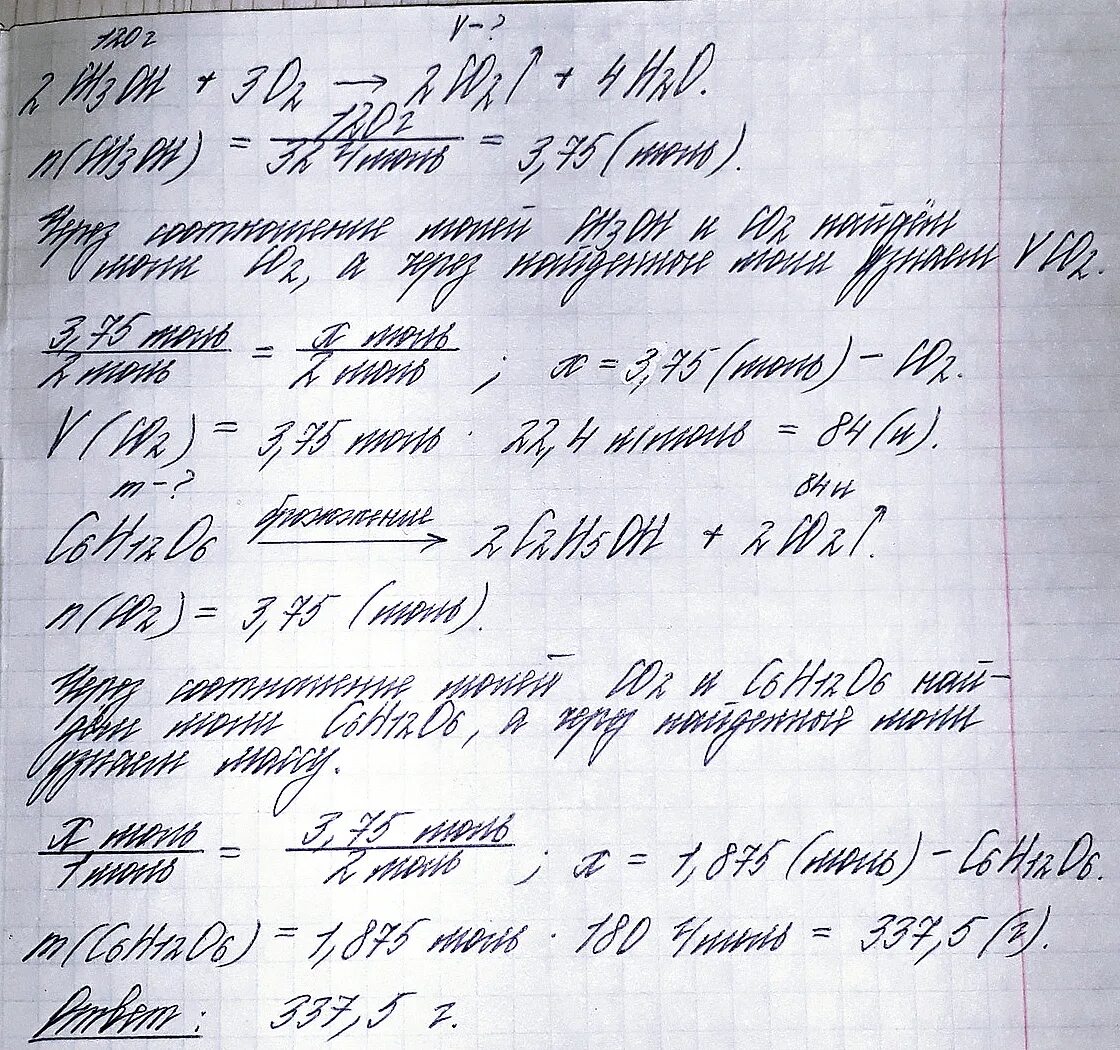 120 г V – ?
2 CH3OH + 3O2 → 2CO2↑ + 4H2O.
n(CH3OH) = 120 г / 32 г/моль = 3,75 (моль).
Через соотношение молей CH3OH и CO2 найдём
моли CO2, а через найденные моли узнаем V CO2.
3,75 моль / 2 моль = x моль / 2 моль ; x = 3,75 (моль) – CO2.
V (CO2) = 3,75 моль · 22,4 л/моль = 84 (л).
m – ? 84 л
C6H12O6 брожжение → 2C2H5OH + 2CO2↑.
n(CO2) = 3,75 (моль).
Через соотношение молей CO2 и C6H12O6 най-
дём моли C6H12O6, а через найденные моли
узнаем массу.
x моль / 1 моль = 3,75 моль / 2 моль ; x = 1,875 (моль) – C6H12O6.
m(C6H12O6) = 1,875 моль · 180 г/моль = 337,5 (г).
Ответ: 337,5 г.